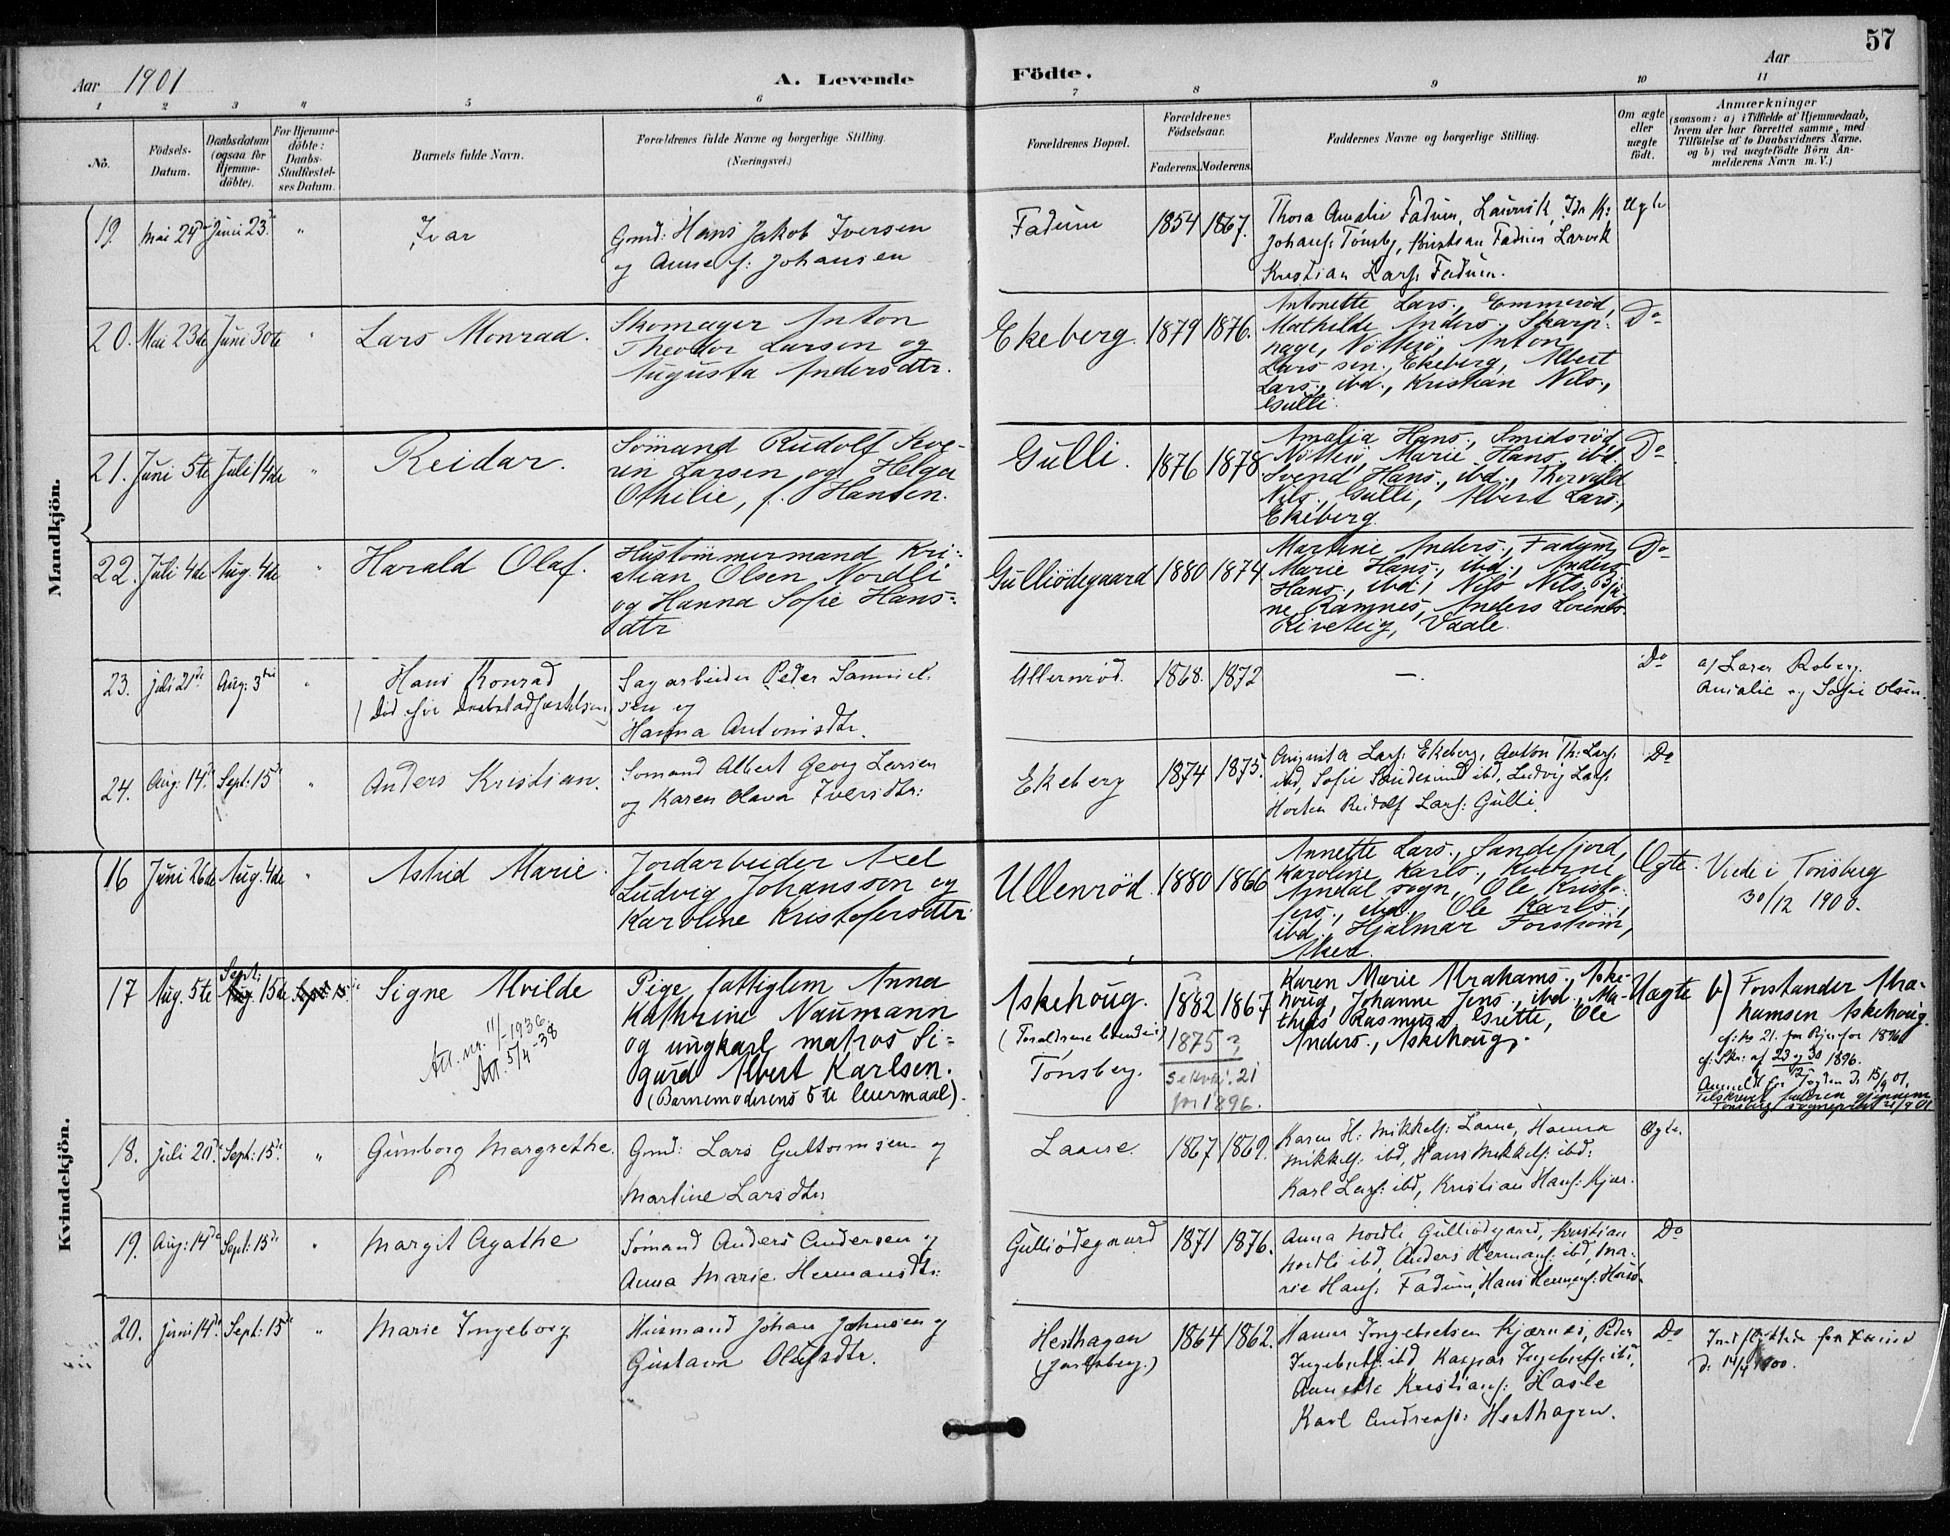 57
Aar 1901
A. Levende
Födte.
Aar
1 2 3 4 5 6 7 8 9 10 11
No.
Födsels-
Datum.
Daabsdatum
(ogsaa for
Hjemme-
döbte).
For Hjemme-
döbte:
Daabs-
Stadfæstel-
ses Datum.
Barnets fulde Navn.
Forældrenes fulde Navne og borgerlige Stilling.
(Næringsvei.)
Forældrenes Bopæl.
Forældrenes
Födselsaar.
Faderens. Moderens.
Faddernes Navne og borgerlige Stilling.
Om ægte
eller
uægte
födt.
Anmærkninger
(saasom: a) i Tilfælde af Hjemmedaab,
hvem der har forrettet samme, med
Tilföielse af to Daabsvidners Navne.
og b) ved uægtefödte Börn An-
melderens Navn m. V.)
Mandkjön.
19. Mai 24de Juni 23de "
Ivar
Gmd: Hans Jakob Iversen
og Anne f. Johansen
Fadum 1854 1867.
Thora Amalie Fadum, Laurvik, Ida K:
Johans: Tønsbg, Kristian Fadum Larvik
Kristian Lars: Fadum.
Ægte
20. Mai 23de Juni 30te "
Lars Monrad.
Skomager Anton
Theodor Larsen og
Augusta Andersdtr.
Ekeberg 1879 1876.
Antonette Lars., Emmerød,
Mathilde Anders., Skarp-
hage, Nøtterö, Anton
Lars sen., Ekeberg, Albert
Lars., ibd., Kristian Nils.,
Gulli.
Do
21. Juni 5te Juli 14de "
Reidar.
Sömand Rudolf Seve-
rin Larsen og Helga
Othilie, f. Hansen.
Gulli. 1876 1878.
Amalia Hans., Smidsröd,
Nötterö, Marie Hans., ibd.
Svend Hans., ibd., Thorvald
Nils., Gulli, Albert Lars.,
Ekeberg
Do
22. Juli 4de Aug. 4de "
Harald Olaf.
Hustömmermand Kri-
stian Olsen Nordli
og Hanna Sofie Hans-
dtr
Gulliödegaard 1880 1874
Martine Anders., Fadum,
Marie Hans., ibd., Anders
Hans., ibd., Nils Nils.,
Ramnes, Anders Lorents.
Kiveteig, Vaale.
Do
23. juli 21de Aug: 3die "
Hans Konrad
(Död før Daabstadfæstelsen)
Sagarbeider Peder Samuel-
sen og
Hanna Antonisdtr.
Ullenrød. 1868. 1872
—
Do
a) Laren Roberg.
Amalie og Sofie Olsen.
24. Aug: 14de Sept: 15de "
Anders Kristian.
Sømand Albert Georg Larsen
og Karen Olava Iversdtr:
Ekeberg 1874 1875.
Augusta Lars: Ekeberg, Anton Th: Lars:
ibd, Sofie Sundesund ibd, Ludvig Lars:
Horten Reidolf Lars: Gulli.
Do
Kvindekjön.
16 Juni 26de Aug. 4de "
Astrid Marie.
Jordarbeider Axel
Ludvig Johansson og
Karoline Kristofersdtr
Ullenröd. 1880 1866
Annette Lars., Sandefjord,
Karoline Karls., Kverne,
Andal sogn, Ole Kristo-
fers., ibd., Ole Karls.,
ibd., Hjalmar Forström,
Aker.
Ægte.
Viede i Tönsberg
30/12 1900.
17 Aug. 5te Sept: 15de
Signe Alvilde
Att. nr. 11/-1936.
Att. 5/4-38
Pige, fattiglem Anna
Kathrine Naumann
og ungkarl matros Si-
gurd Albert Karlsen.
(Barnemoderens 5te leiermaal).
Askehoug.
(Forældrene boende i)
Tönsberg.
1882 1867
1875 ?
se konf. 21
for 1896.
Karen Marie Abrahams., Aske-
houg, Johanne Jens., ibd., Ma-
thias Rasmuss. Grette, Ole
Anders., Askehoug.
Uægte
b) Forstander Abra-
hamsen Askehoug.
cf. no 21. for Piger for 1896
cf: Skr: af 23 og 30 1896.
Anmeldt for Fogden d. 15/9 01.
Tilskrevet faderen gjennem
Tönsberg sogneprest 21/9 01
18. juli 20de Sept: 15de "
Gunborg Margrethe.
Gmd: Lars Guttormsen og
Martine Larsdtr.
Laane. 1867 1869.
Karen H: Mikkels: Laane, Hanna
Mikkels: ibd, Hans Mikkels: ibd:
Karl Lars: ibd, Kristian Hans: Kjær.
Ægte.
19. Aug: 14de Sept: 15de "
Margit Agathe
Sömand Anders Andersen og
Anna Marie Hermansdtr:
Gulliödegaard 1871 1876.
Anna Nordli Gulliødegaard, Kristian
Nordli ibd, Anders Hermans: ibd, Ma-
rie Hans: Fadum, Hans Hermans:
Do
20. juni 14de Sept: 15de "
Marie Ingeborg
Husmand Johan Johnsen og
Gustava Olufsdtr.
Hesthagen
(Jarlsberg.)
1864 1862.
Hanna Ingebretsen Kjærnes, Peder
Ingebrets: ibd, Kaspar Ingebrets: ibd,
Annette Kristians: Hasle
Karl Andreas: Hesthagen.
Do
Indflyttede fra
d. 14/4 1900.